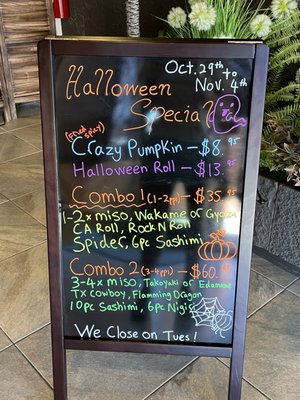 Oct. 29th to
Nov. 4th
Halloween
Special
Crazy Pumpkin - $8.95
Halloween Roll - $13.95
Combo 1 (1-2ppl) - $35.95
1-2x miso, Wakame or Gyoza
CA Roll, Rock N Roll
Spider, 6pc Sashimi
Combo 2 (3-4ppl) - $60.95
3-4x miso, Takoyaki or Edamame
TX Cowboy, Flamming Dragon
10pc Sashimi, 6pc Nigiri
We Close on Tues!